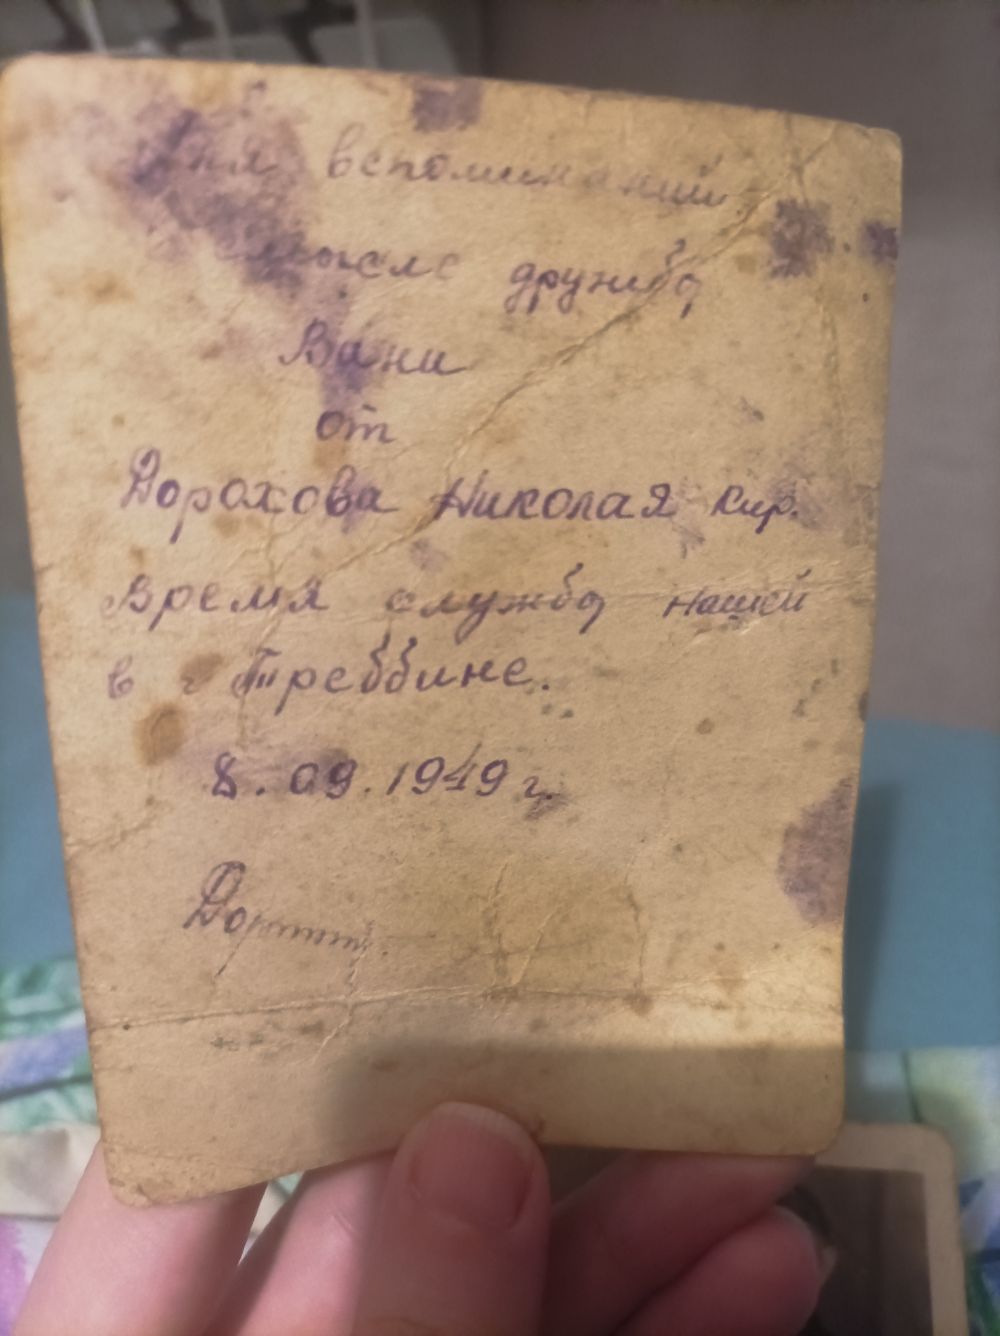 Для вспоминаний
дружбы
Вани
от
Дорохова Николая Кир.
Время службы нашей
в г Треббине.
8.09.1949 г.